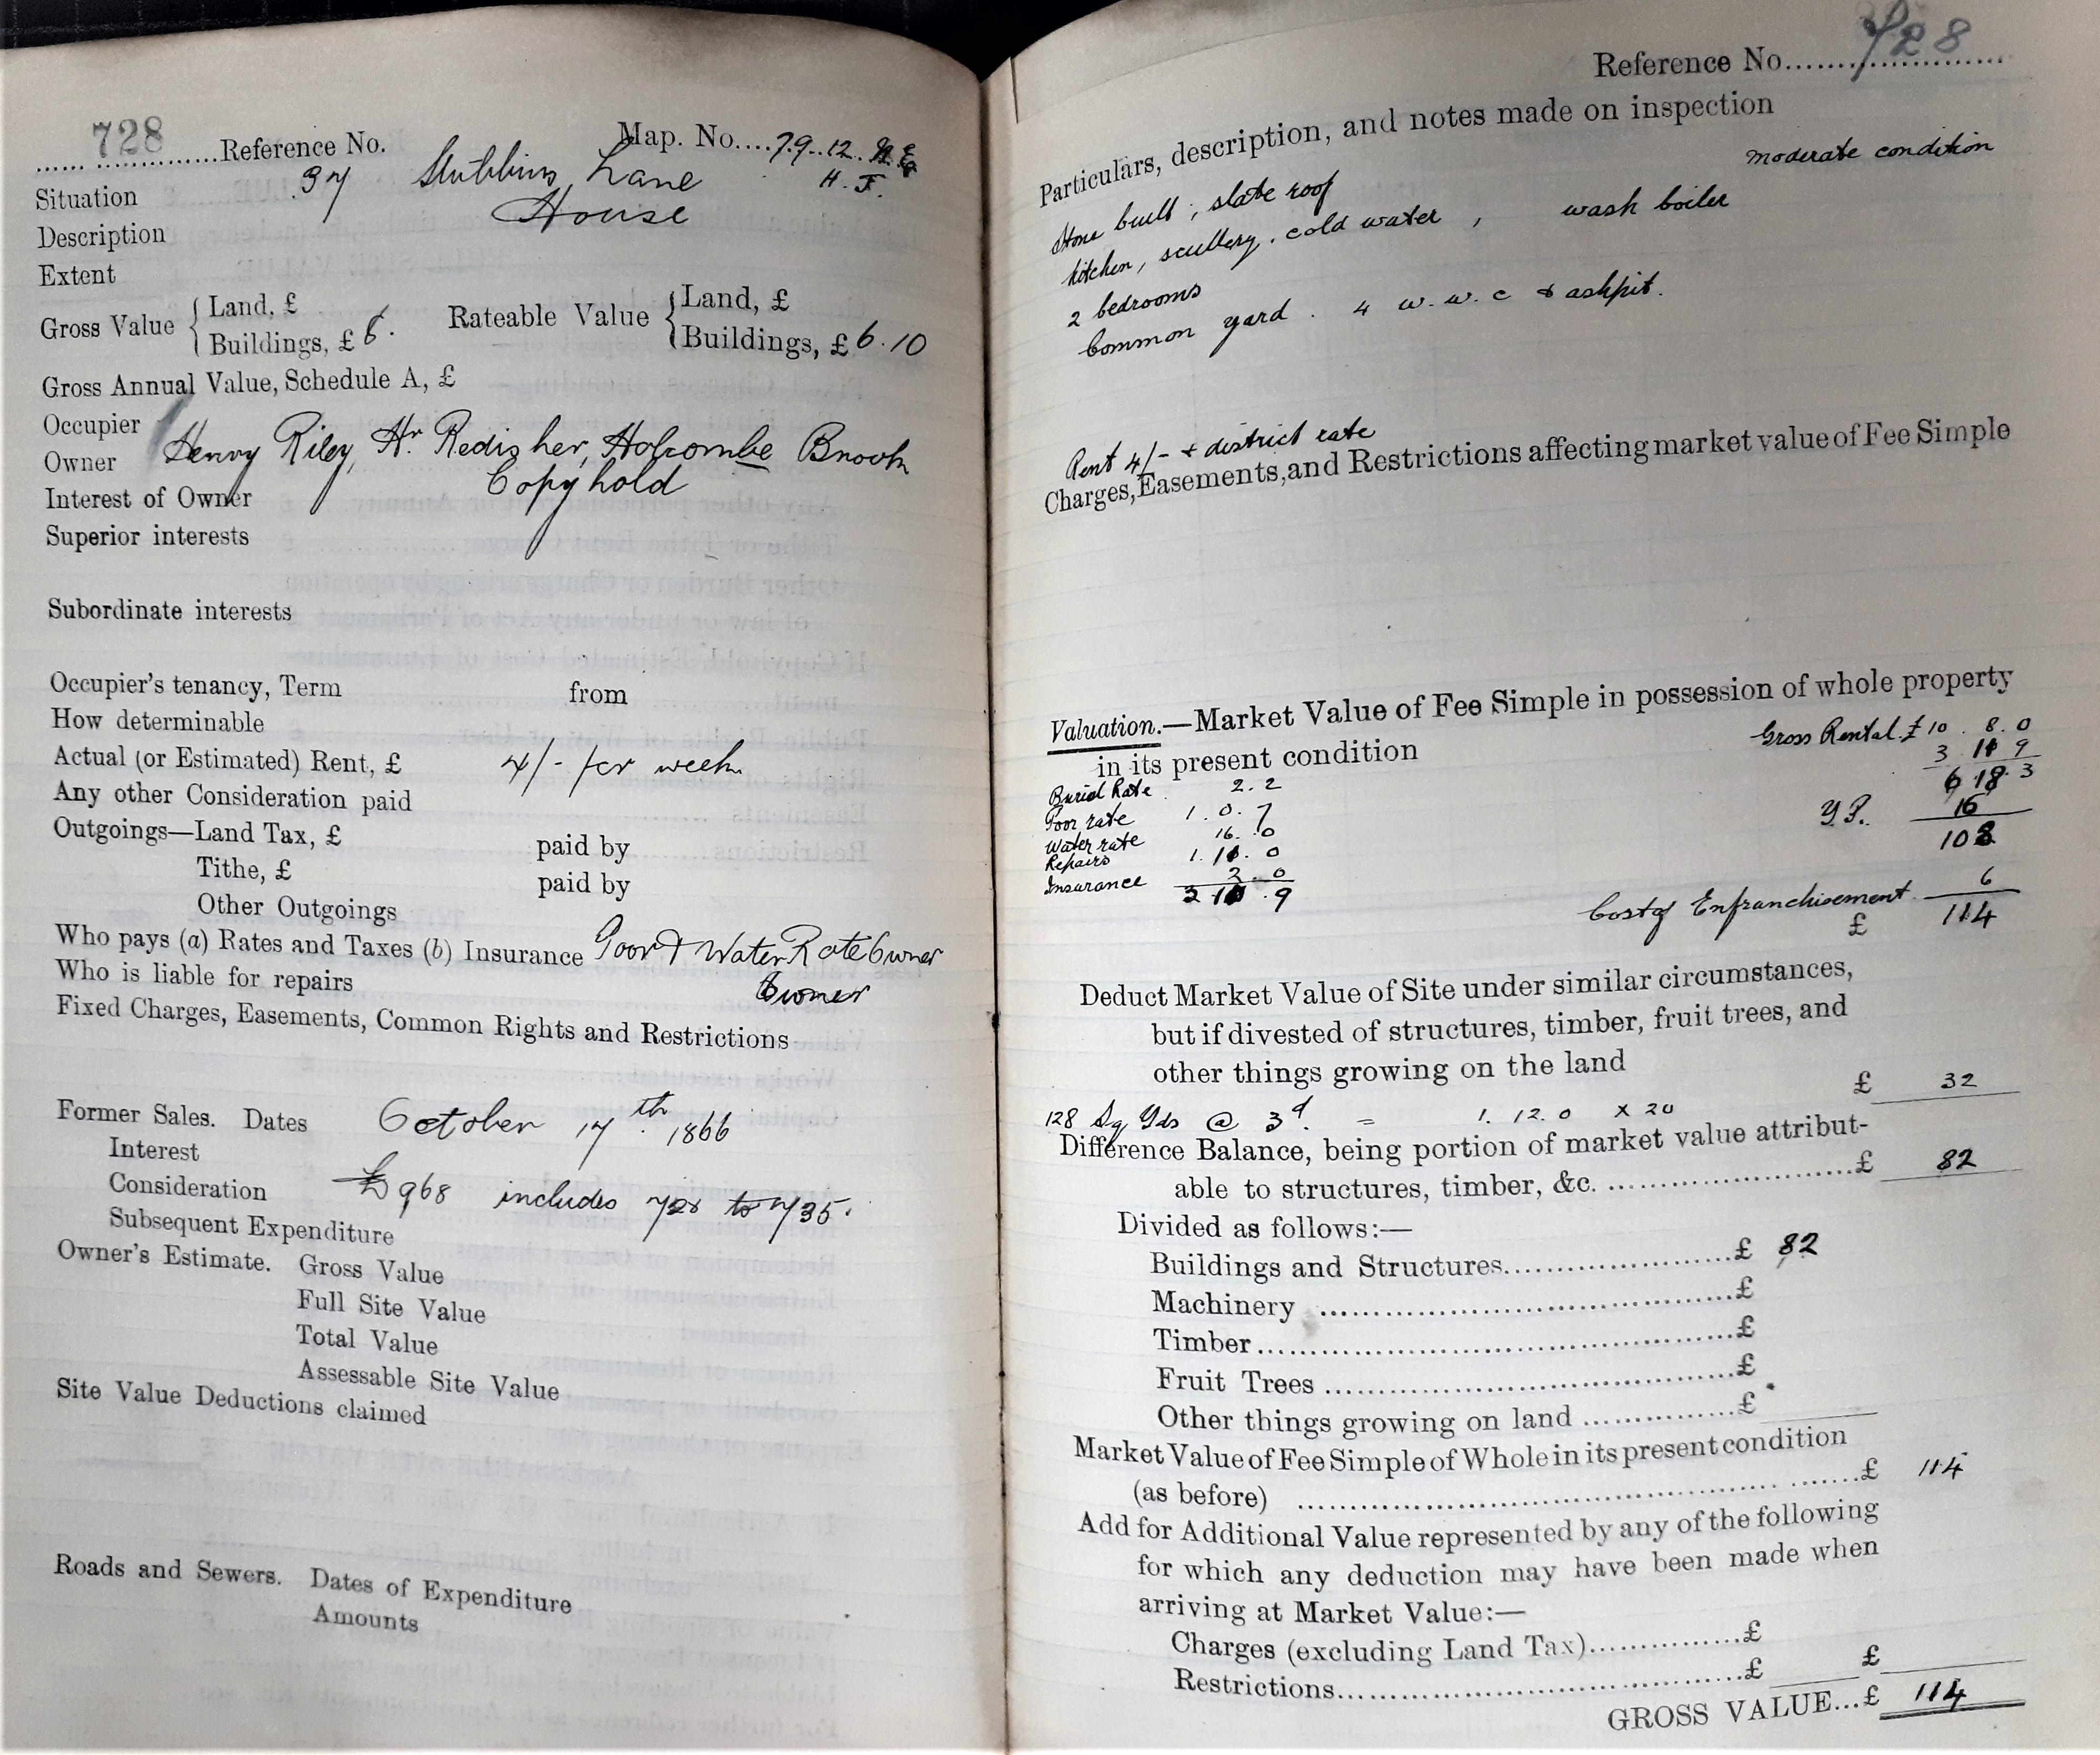 728 Reference No. Map. No. 79.12. N.E
Situation 37 Stubbins Lane H. F.
Description House
Extent
Gross Value { Land, £ Rateable Value { Land, £
Buildings, £ 8. Buildings, £ 6.10
Gross Annual Value, Schedule A, £
Occupier
Owner Henry Riley, Hr. Redisher, Holcombe Brook
Interest of Owner Copyhold
Superior interests
Subordinate interests
Occupier's tenancy, Term from
How determinable
Actual (or Estimated) Rent, £ 4/- per week
Any other Consideration paid
Outgoings—Land Tax, £ paid by
Tithe, £ paid by
Other Outgoings
Who pays (a) Rates and Taxes (b) Insurance Poor & Water Rate Owner
Who is liable for repairs Owner
Fixed Charges, Easements, Common Rights and Restrictions
Former Sales. Dates October 17th 1866
Interest
Consideration £968 includes 728 to 735.
Subsequent Expenditure
Owner's Estimate. Gross Value
Full Site Value
Total Value
Assessable Site Value
Site Value Deductions claimed
Roads and Sewers. Dates of Expenditure
Amounts
Reference No. 728
Particulars, description, and notes made on inspection
moderate condition
Stone built, slate roof
kitchen, scullery. cold water, wash boiler
2 bedrooms
Common yard. 4 w.w.c & ashpit.
Rent 4/- + district rate
Charges, Easements, and Restrictions affecting market value of Fee Simple
Valuation.—Market Value of Fee Simple in possession of whole property
in its present condition
Gross Rental £ 10. 8. 0
9
6 18. 3
Y.P. 16
108
Burial Rate 2. 2
Poor rate 1. 0. 7
Water rate 16. 0
Repairs 0
Insurance 2. 0
9
6
Cost of Enfranchisement
£ 114
Deduct Market Value of Site under similar circumstances,
but if divested of structures, timber, fruit trees, and
other things growing on the land
£ 32
128 Sq Yds @ 3d. = 1. 12. 0 x 20
Difference Balance, being portion of market value attribut-
able to structures, timber, &c. £ 82
Divided as follows:—
Buildings and Structures £ 82
Machinery £
Timber £
Fruit Trees £
Other things growing on land £
Market Value of Fee Simple of Whole in its present condition
(as before) £ 114
Add for Additional Value represented by any of the following
for which any deduction may have been made when
arriving at Market Value:—
Charges (excluding Land Tax) £
Restrictions £ £
GROSS VALUE...£ 114